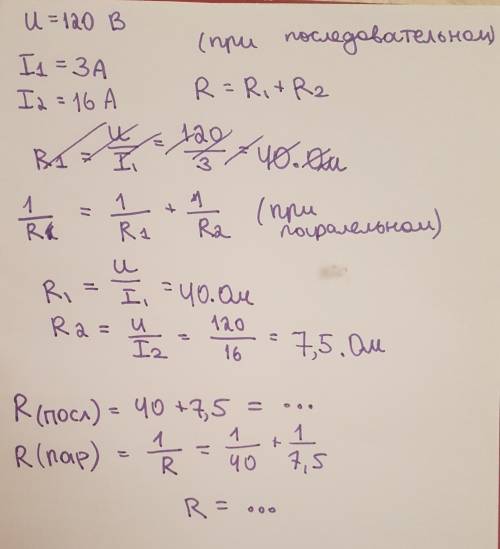 U = 120 В
(при последовательном)
I1 = 3А
I2 = 16 А
R = R1 + R2
R1 = U/I1 = 120/3 = 40. Ом
1/R = 1/R1 + 1/R2 (при
паралельном)
R1 = U/I1 = 40. Ом
R2 = U/I2 = 120/16 = 7,5. Ом
R(посл) = 40 + 7,5 = ...
R(пар) = 1/R = 1/40 + 1/7,5
R = ...